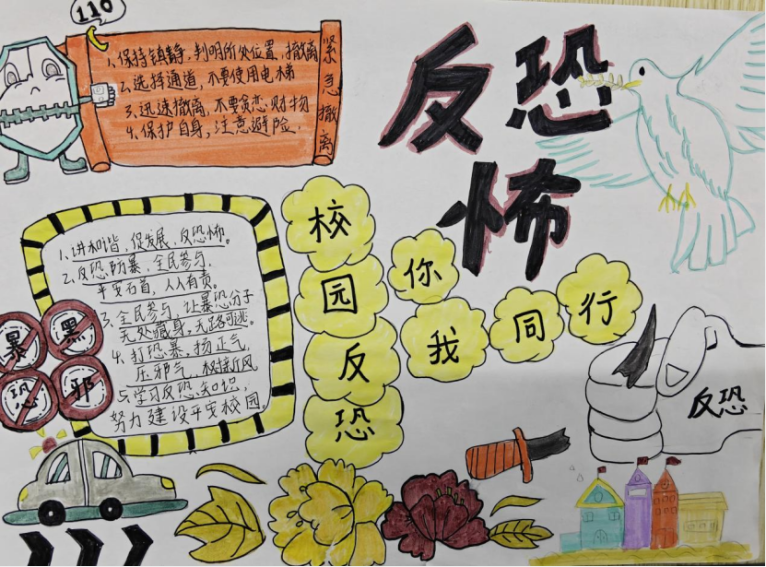 110
1、保持镇静,判明所处位置,撤离
2、选择通道,不要使用电梯
3、迅速撤离,不要贪恋财物
4、保护自身,注意避险.
紧急撤离
反恐
怖
1、讲和谐,促发展,反恐怖。
2、反恐防暴,全民参与,
平安石首,人人有责。
3、全民参与,让暴恐分子
无处藏身,无路可逃。
4、打恐暴,扬正气,
压邪气,树新风
5、学习反恐知识,
努力建设平安校园。
暴
黑
恐
邪
校园反恐
你我同行
反恐